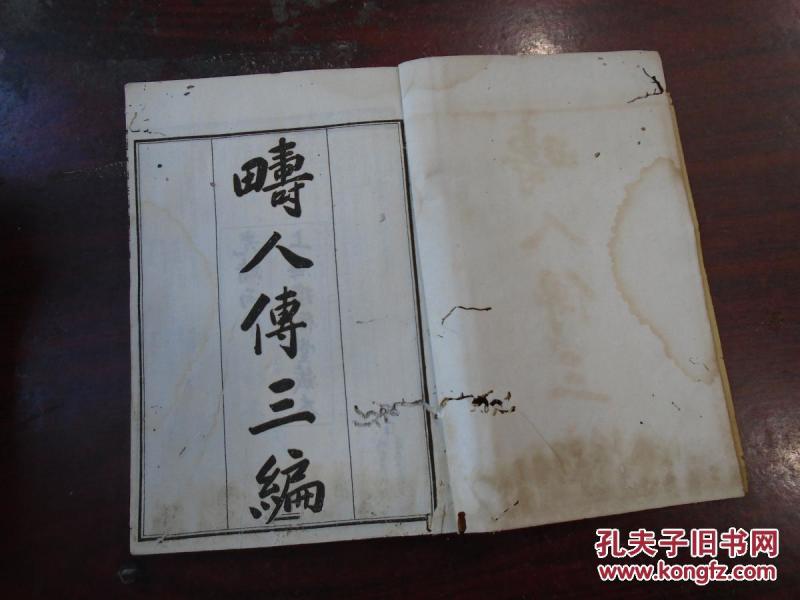 疇人傳三編
孔夫子旧书网
www.kongfz.com